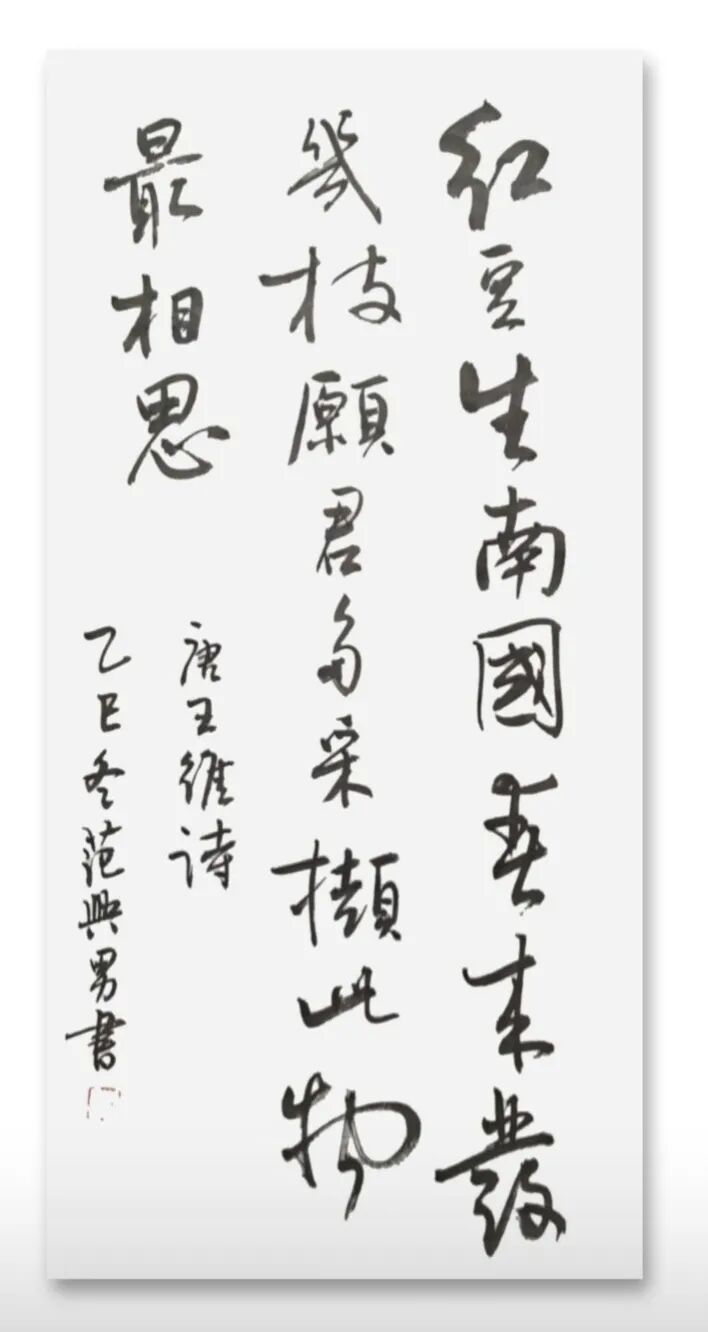 红豆生南國春来發
幾枝願君多采擷此物
最相思
唐王維诗
乙巳冬范興男書